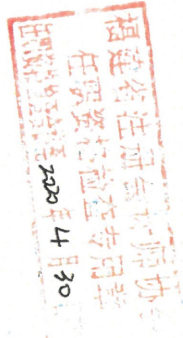 福建省注册会计师协
任职资格检查专用章
2020年4月30